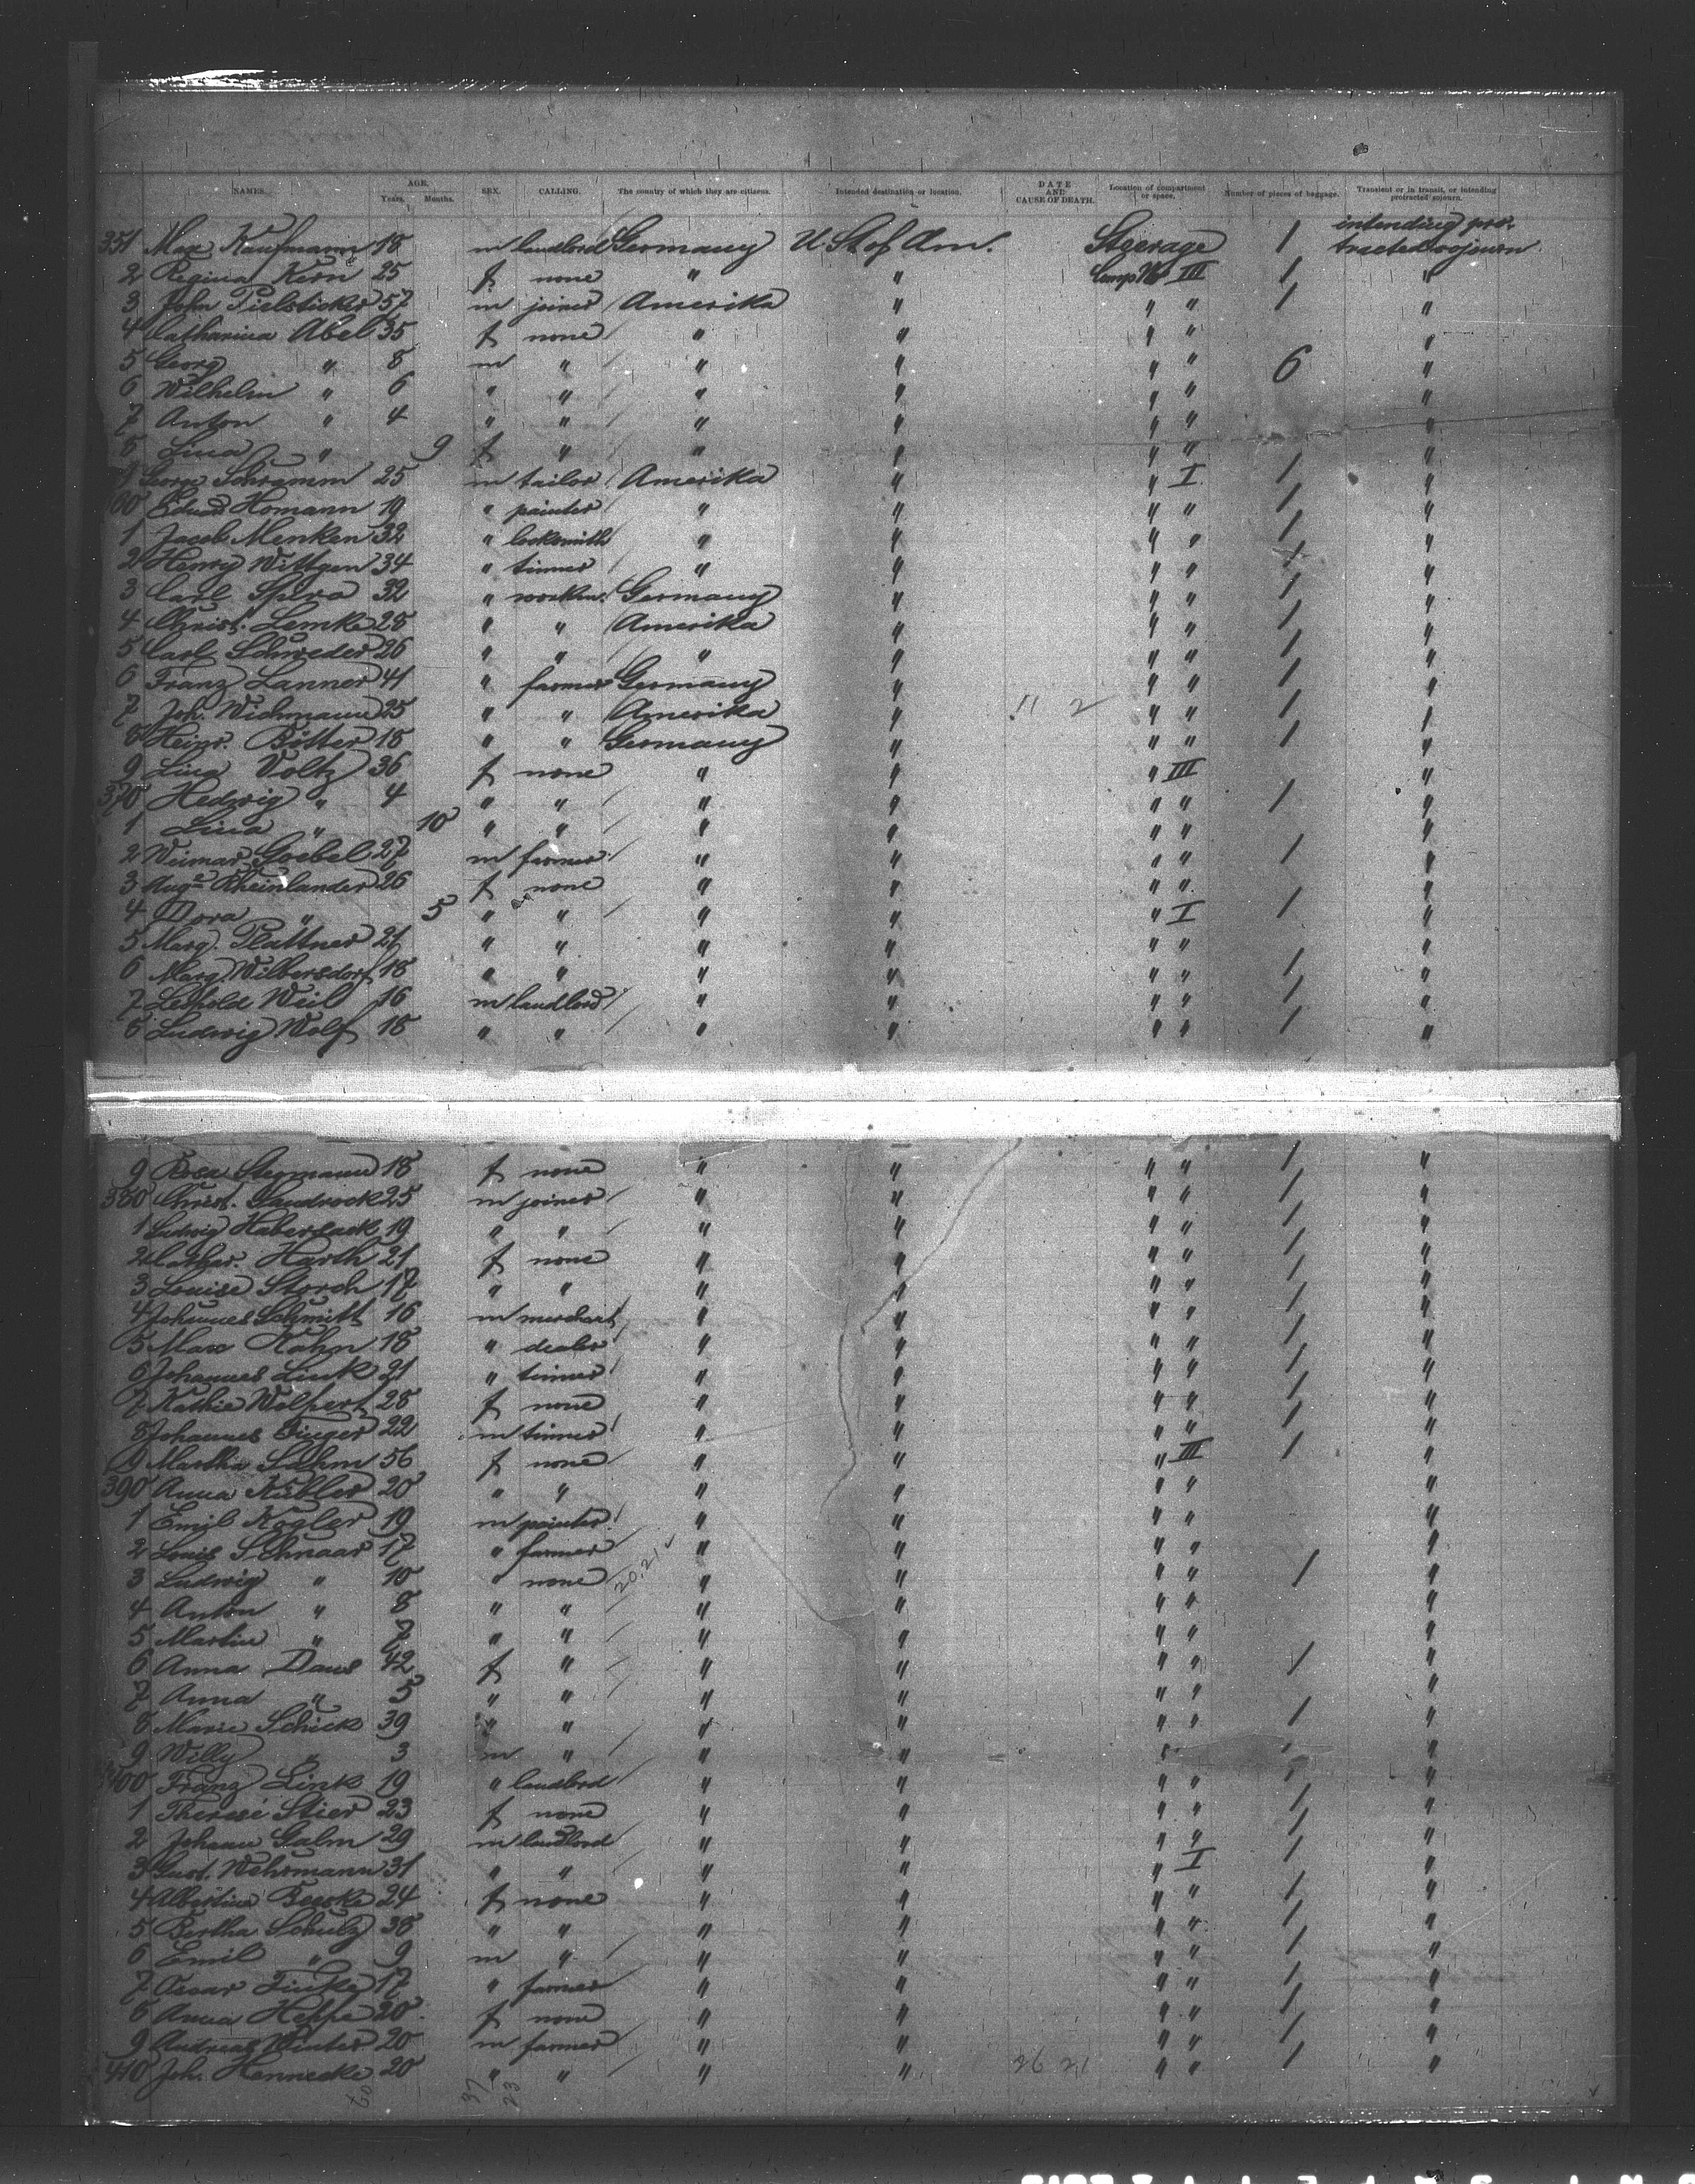 NAMES. AGE. Years. Months. SEX. CALLING. The country of which they are citizens. Intended destination or location. DATE AND CAUSE OF DEATH. Location of compartment or space. Number of pieces of baggage. Transient or in transit, or intending protracted sojourn.
351 Max Kaufmann 18 m landlord Germany U. St. of Am. Steerage 1 intending protracted sojourn
2 Regina Kern 25 f none " Comp. No III 1 "
3 John Pielsticker 57 m joiner Amerika " " " 1 "
4 Catharina Abel 35 f none " " " " "
5 Georg " 8 m " " " " " 6 "
6 Wilhelm " 6 " " " " " " "
7 Anton " 4 " " " " " " "
8 Lina " 9 f " " " " " "
9 George Schramm 25 m tailor Amerika " " I 1 "
60 Eduard Homann 19 " painter " " " " 1 "
1 Jacob Menken 32 " locksmith " " " " 1 "
2 Henry Wittgen 34 " tinner " " " " 1 "
3 Carl Spira 32 " workm. Germany " " " 1 "
4 Christ. Lemke 28 " " Amerika " " " 1 "
5 Carl Schroeder 26 " " " " " " 1 "
6 Franz Lanner 41 " farmer Germany " " " 1 "
7 Joh. Wichmann 25 " " Amerika " 11 2 " " 1 "
8 Heinr. Bitter 18 " " Germany " " " 1 "
9 Lina Voltz 36 f none " " " III "
370 Hedwig " 4 " " " " " " 1 "
1 Lina " 10 " " " " " " "
2 Weimar Goebel 27 m farmer " " " " 1 "
3 Auge Rheinlander 26 f none " " " " "
4 Dora " 5 " " " " " I 1 "
5 Marg. Plattner 21 " " " " " " "
6 Marg. Wilbersdorf 18 " " " " " " 1 "
7 Leopold Weil 16 m landlord " " " " 1 "
8 Ludwig Wolf 18 " " " " " " 1 "
9 Rosa Stegmann 18 f none " " " " 1 "
380 Christ. Sandrock 25 m joiner " " " " 1 "
1 Ludwig Habersack 19 " " " " " " 1 "
2 Cathar. Harth 21 f none " " " " 1 "
3 Louise Storch 17 " " " " " " 1 "
4 Johannes Schmitt 16 m merchart " " " " 1 "
5 Max Hahn 18 " dealer " " " " 1 "
6 Johannes Link 21 " tinner " " " " 1 "
7 Kathie Wolpert 28 f none " " " " 1 "
8 Johannes Finger 22 m tinner " " " " 1 "
9 Martha Sahm 56 f none " " " III 1 "
390 Anna Kübler 20 " " " " " " "
1 Emil Kogler 19 m painter " " " " "
2 Louis Schnaar 17 " farmer " " " " "
3 Ludwig " 10 " none 20,21 " " " " 1 "
4 Anton " 8 " " " " " " "
5 Martin " 7 " " " " " " "
6 Anna Daus 42 f " " " " " 1 "
7 Anna " 5 " " " " " " "
8 Marie Schick 39 " " " " " " 1 "
9 Willy " 3 m " " " " " "
400 Franz Link 19 " landlord " " " " 1 "
1 Therese Stier 23 f none " " " " 1 "
2 Johann Galm 29 m landlord " " " " 1 "
3 Gust. Wehrmann 31 " " " " " I "
4 Albertine Beeske 24 f none " " " " 1 "
5 Bertha Schulz 38 " " " " " " 1 "
6 Emil " 9 m " " " " " 1 "
7 Oscar Finke 17 " farmer " " " " 1 "
8 Anna Heppe 20 f none " " " " 1 "
9 Andreas Winter 20 m farmer " " " " 1 "
410 Joh. Hennecke 20 " " " " 26 21 " " 1 "
37 23